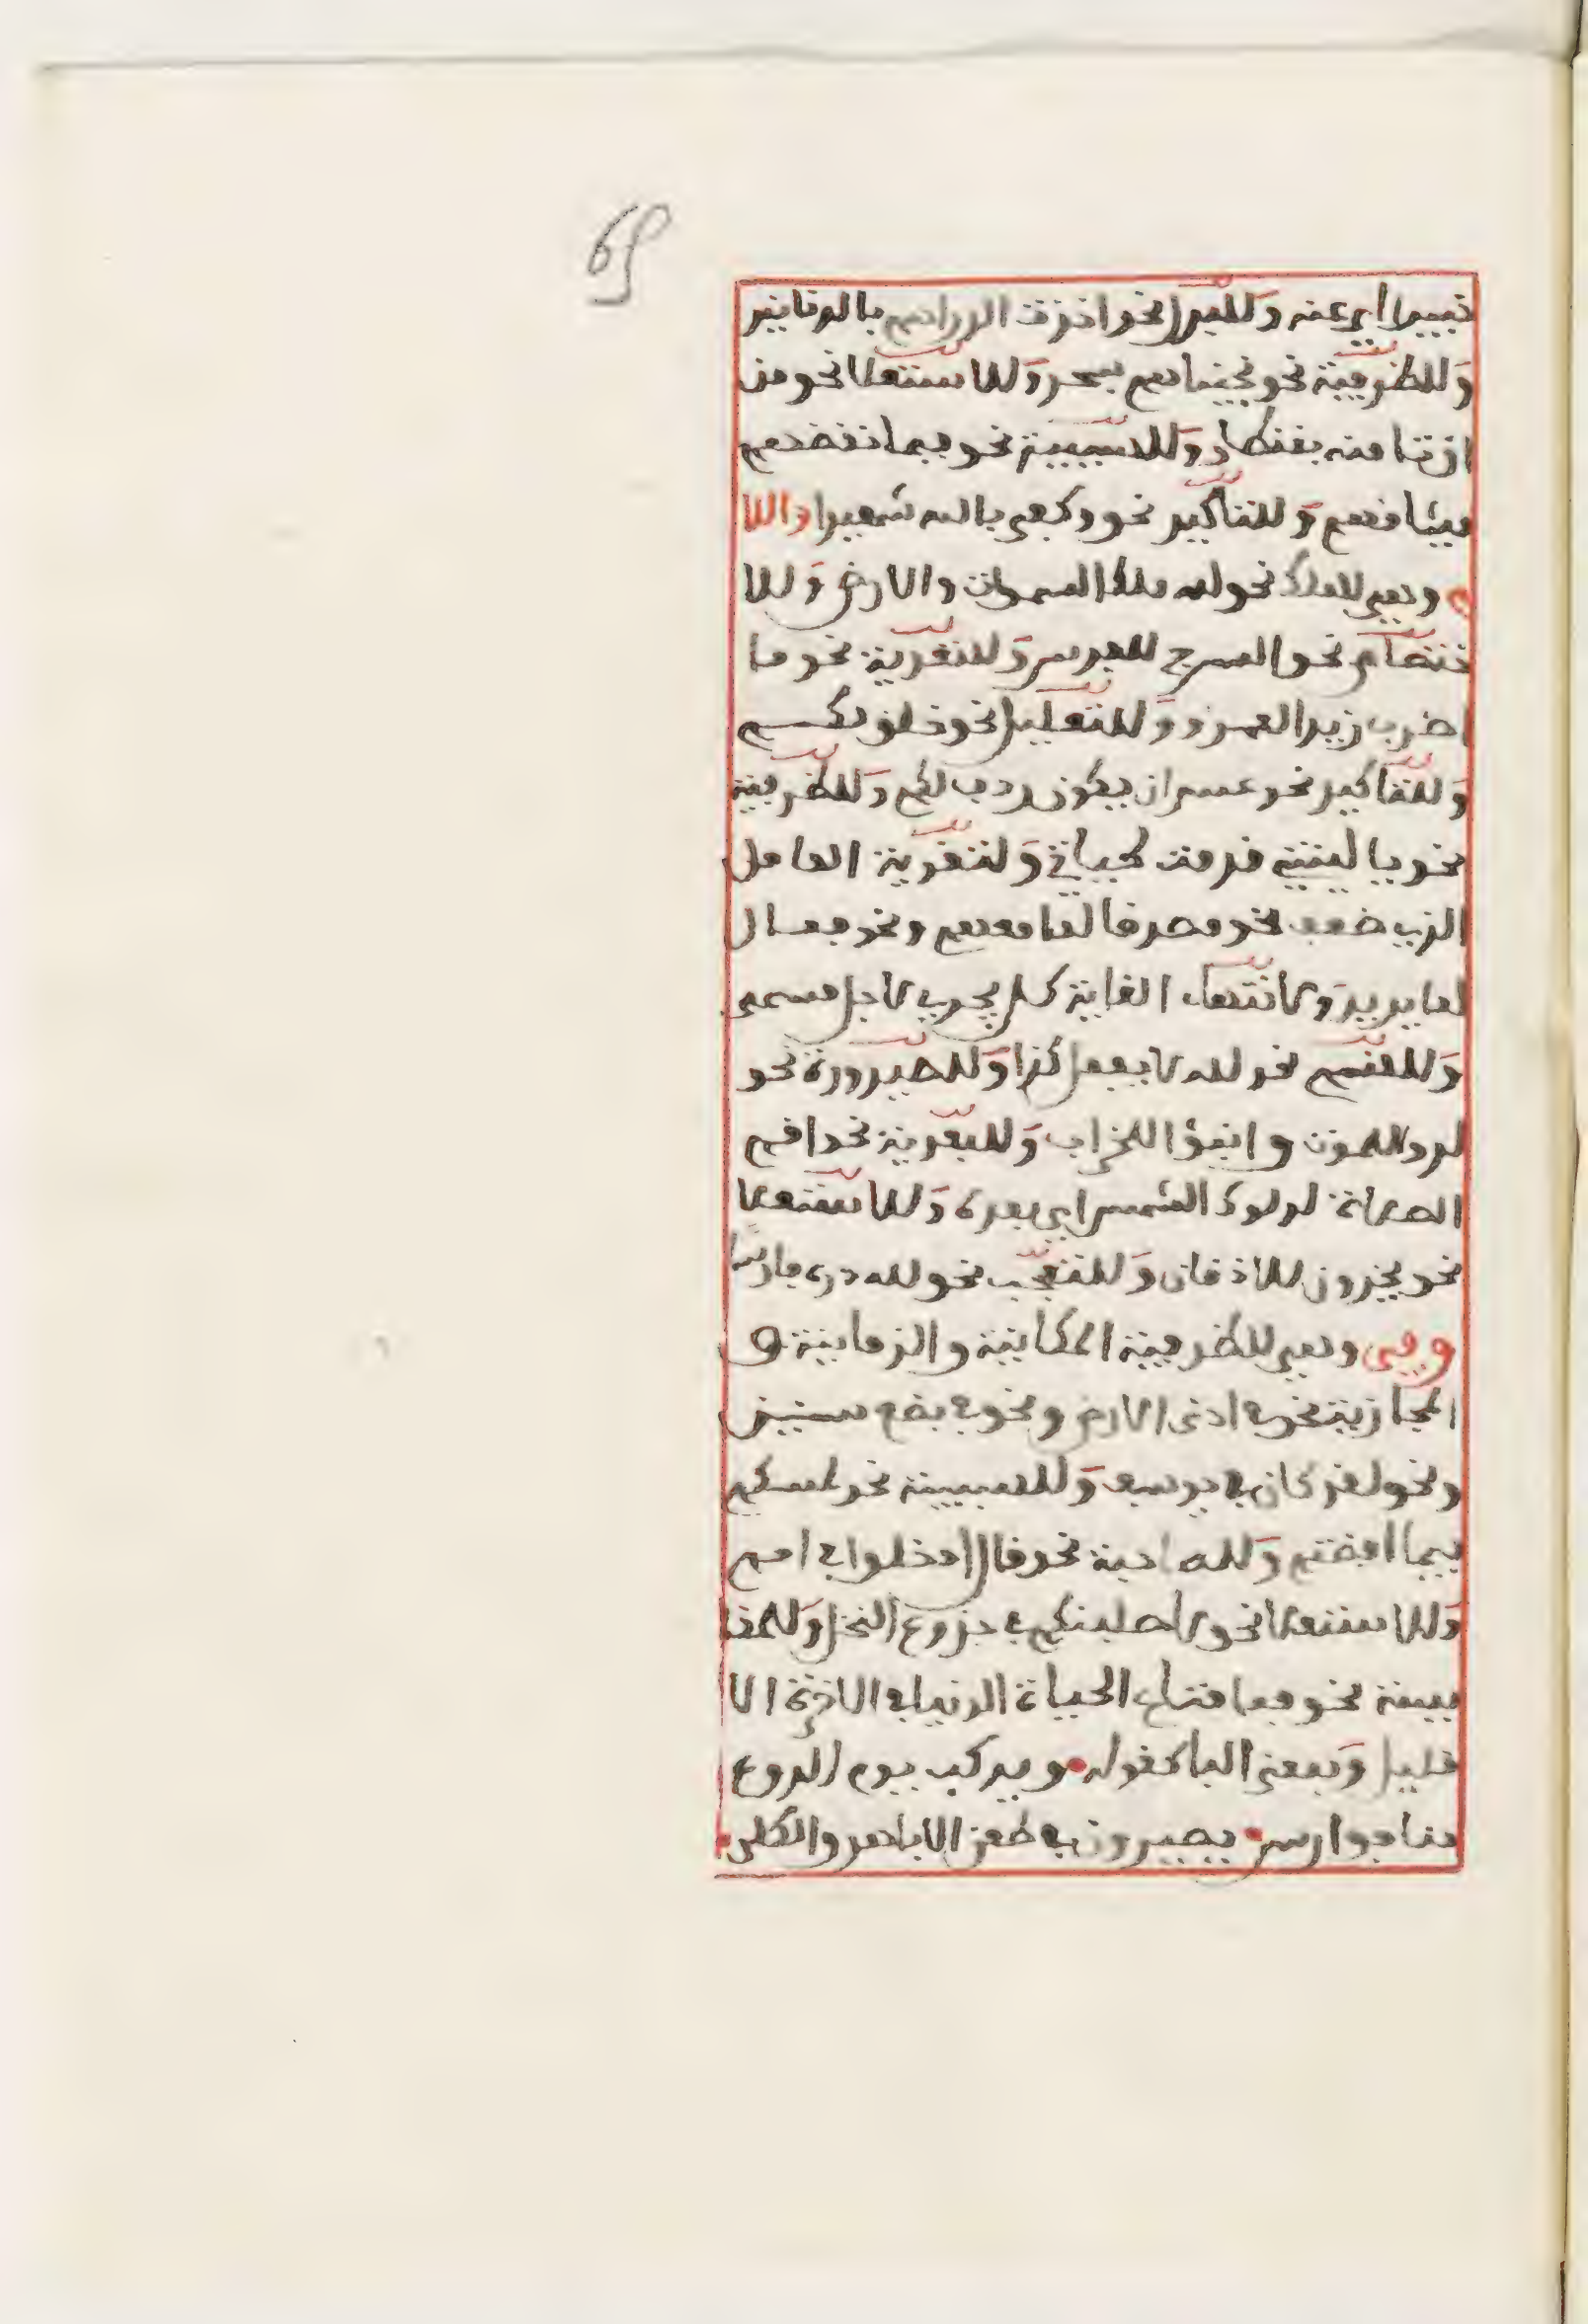 65
خبيرا اي عنه وللبدل نحو اخذت الدراهم بالدنانير
وللظرفية نحو نجيناهم بسحر وللاستعلا نحو من
ان تامنه بقنطار وللسببية نحو فبما نقضهم
ميثاقهم وللتاكيد نحو وكفى بالله شهيدا واللا
م وهي للملك نحو لله ملك السموات والارض وللا
ختصاص نحو السرج للفرس وللتقوية نحو ما
اضرب زيدا لعمرو وللتعليل نحو خلق لكم
وللتاكيد نحو عسى ان يكون ردف لكم وللظرفية
نحو يا ليتني قدمت لحياتي ولتقوية العامل
الذي ضعف نحو مصدقا لما معهم ونحو فعال
لما يريد ولانتهاء الغاية كل يجري لاجل مسمى
وللقسم نحو لله لا يفعل كذا وللصيرورة نحو
لدوا للموت وابنوا للخراب وللبعدية نحو اقم
الصلاة لدلوك الشمس اي بعده وللاستعلا
نحو يخرون للاذقان وللتعجب نحو لله دره فارسا
وفي وهي للظرفية المكانية والزمانية و
المجازية نحو في ادنى الارض ونحو في بضع سنين
ونحو لقد كان في يوسف وللسببية نحو لمسكم
فيما افضتم وللمصاحبة نحو قال ادخلوا في امم
وللاستعلا نحو لاصلبنكم في جذوع النخل وللمقا
يسة نحو فما متاع الحياة الدنيا في الاخرة الا
قليل وبمعنى البا كقوله ويركب يوم الروع
منا فوارس بصيرون في طعن الاباهر والكلى